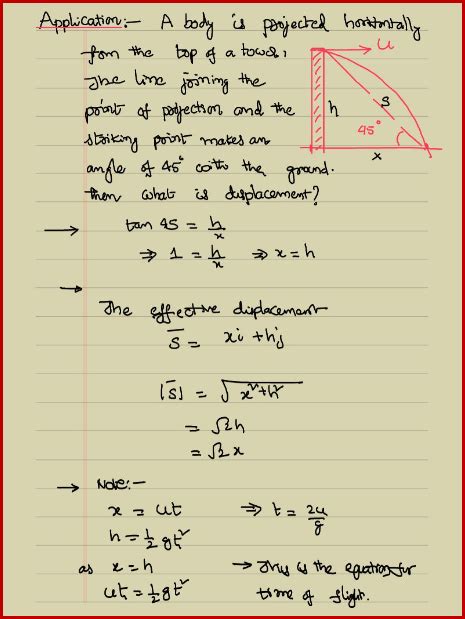 Application:- A body is projected horizontally
from the top of a tower,
The line joining the
point of projection and the
striking point makes an
angle of 45° with the ground.
then what is displacement?
u
h
S
45°
x
→ tan 45 = h/x
⇒ 1 = h/x ⇒ x = h
→
The effective displacement
S̄ = xi + hj
|S̄| = √x²+h²
= √2 h
= √2 x
→ Note:-
x = ut ⇒ t = 2u/g
h = ½ gt²
as x = h → This is the equation for
ut = ½ gt² time of flight.